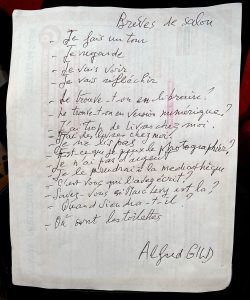 Brèves de salon
- Je fais un tour
- Je regarde
- Je vais voir
- Je vais réfléchir
- Le trouve-t-on en librairie ?
- Le trouve-t-on en version numérique ?
- J'ai trop de livres chez moi.
- Pas de livres chez moi
- Je ne lis pas
- Est-ce que je peux le photographier ?
- Je n'ai pas d'argent
- Je le prendrai à la médiathèque
- C'est vous qui l'avez écrit ?
- Savez-vous si Marc Levy est là ?
- Quand viendra-t-il ?
- Où sont les toilettes
Alfred GILD